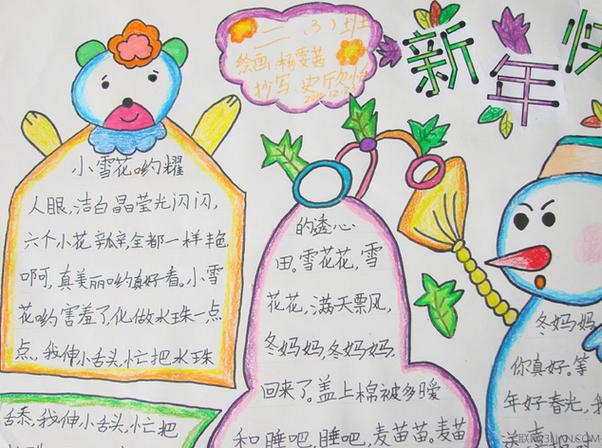 二(3)班
绘画:杨雯茜
抄写:史欣
新年快
小雪花哟耀
人眼,洁白晶莹光闪闪,
六个小花辛辛,全都一样丰艳
啊呵,真美丽哟真好看。小雪
花哟害羞了,化做水珠一点
点,我伸小舌头,忙把水珠
舌忝,我伸小舌头,忙把
的透心
田。雪花花,雪
花花,满天票风,
冬妈妈,冬妈妈,
回来了。盖上棉被多暖
和睡吧,睡吧,麦苗苗,麦苗
冬妈妈
你真好。等
年好春光,我